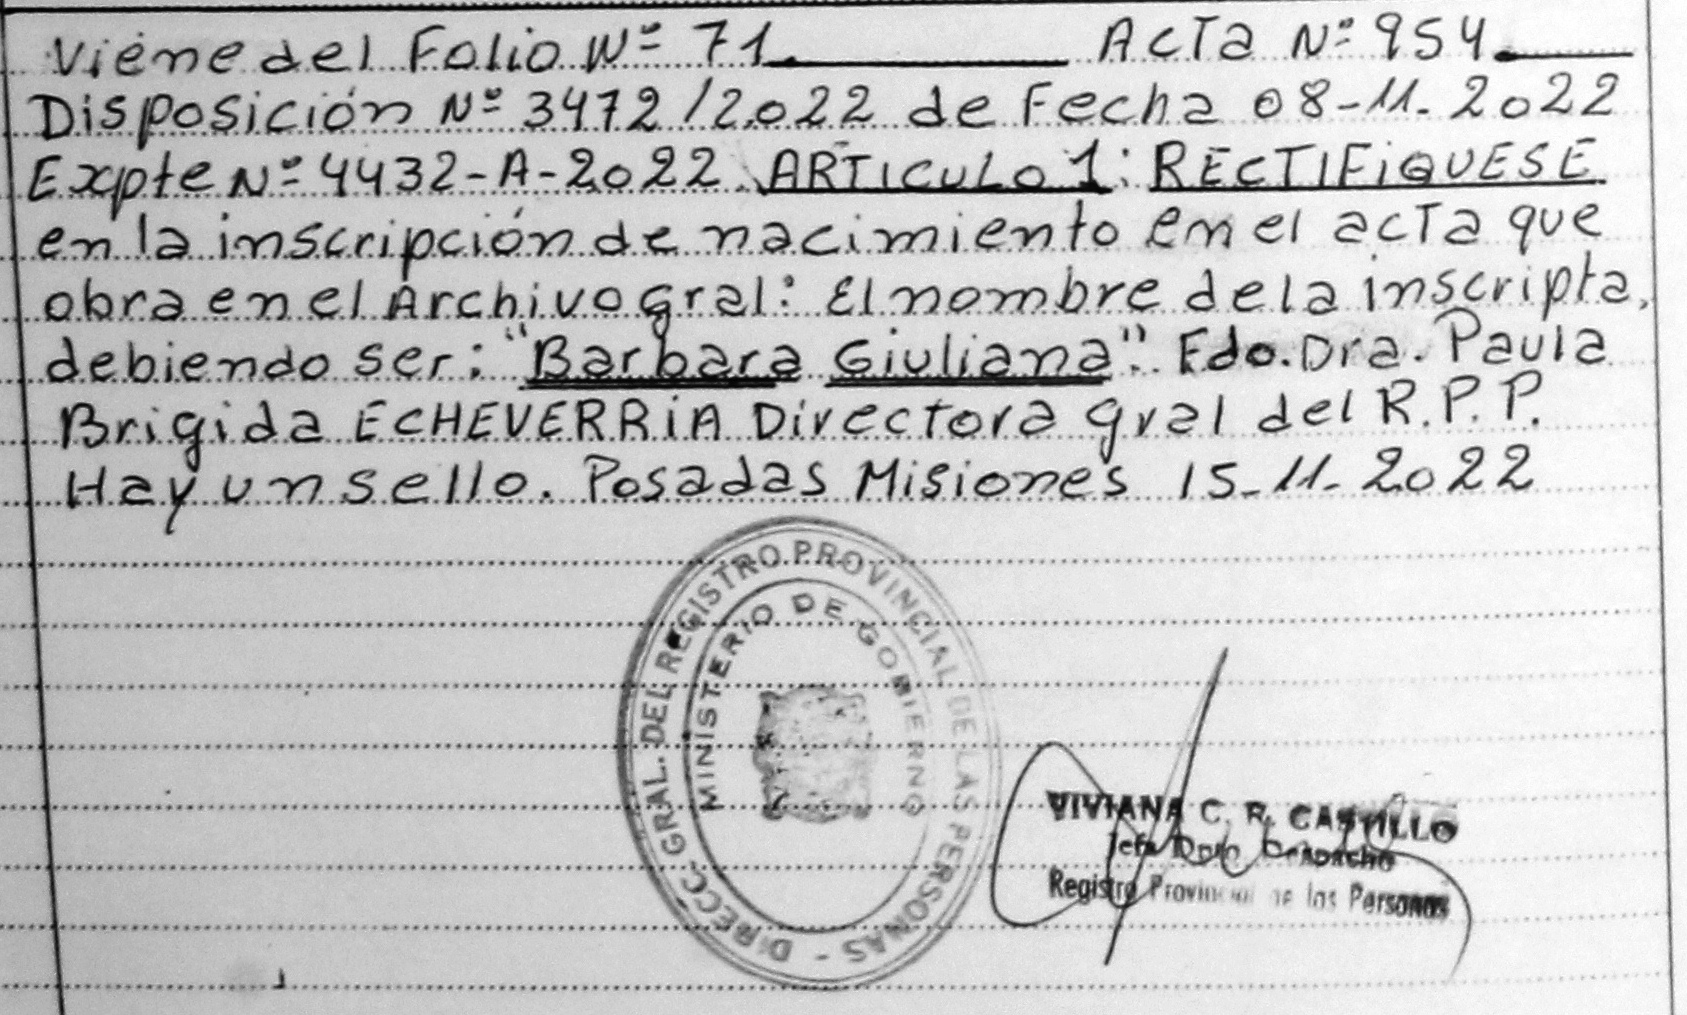 Viene del Folio Nº 71 Acta Nº 954
Disposición Nº 3472/2022 de Fecha 08-11-2022
Expte Nº 4432-A-2022. ARTICULO 1: RECTIFIQUESE
en la inscripción de nacimiento en el acta que
obra en el Archivo Gral: El nombre de la inscripta,
debiendo ser: "Barbara Giuliana". Fdo. Dra. Paula
Brigida ECHEVERRIA Directora Gral del R.P.P.
Hay un sello. Posadas Misiones 15-11-2022
DIRECC. GRAL. DEL REGISTRO PROVINCIAL DE LAS PERSONAS -
MINISTERIO DE GOBIERNO
VIVIANA C. R. CASTILLO
Jefa Dpto. Despacho
Registro Provincial de las Personas